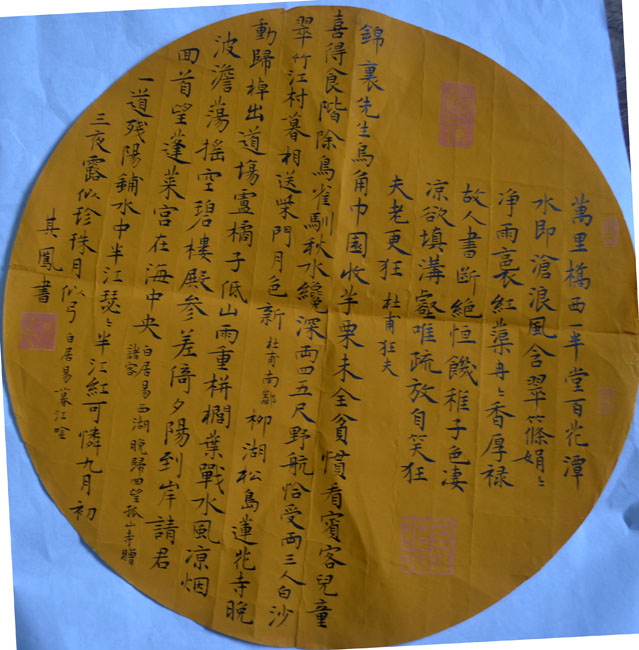 萬里橋西一半堂百花潭
水即滄浪風含翠篠娟〻
净雨裛紅蕖冉〻香厚禄
故人書斷絕恒饑稚子色凄
凉欲填溝壑唯疏放自笑狂
夫老更狂 杜甫狂夫
錦裏先生烏角巾園收芋栗未全貧慣看賓客兒童
喜得食階除鳥雀馴秋水纔深四五尺野航恰受兩三人白沙
翠竹江村暮相送柴門月色新 杜甫南鄰 柳湖松島蓮花寺晚
動歸棹出道場盧橘子低山雨重栟櫚葉戰水風凉烟
波澹蕩搖空碧樓殿參差倚夕陽到岸請君
回首望蓬萊宮在海中央 白居易西湖晚歸回望孤山寺贈
諸客
一道殘陽鋪水中半江瑟〻半江紅可憐九月初
三夜露似珍珠月似弓 白居易暮江吟
其鳳書